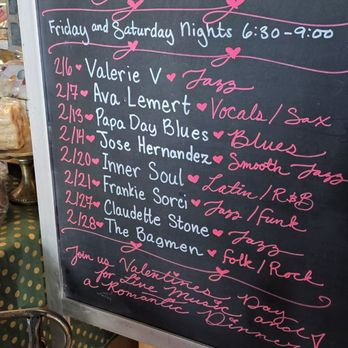 Friday and Saturday Nights 6:30-9:00
2/6 Valerie V Jazz
2/7 Ava Lemert Vocals/Sax
2/13 Papa Day Blues Blues
2/14 Jose Hernandez Smooth Jazz
2/20 Inner Soul Latin/R&B
2/21 Frankie Sorci Jazz/Funk
2/27 Claudette Stone Jazz
2/28 The Bagmen Folk/Rock
Join us Valentines Day
for Live Music and
a Romantic Dinner